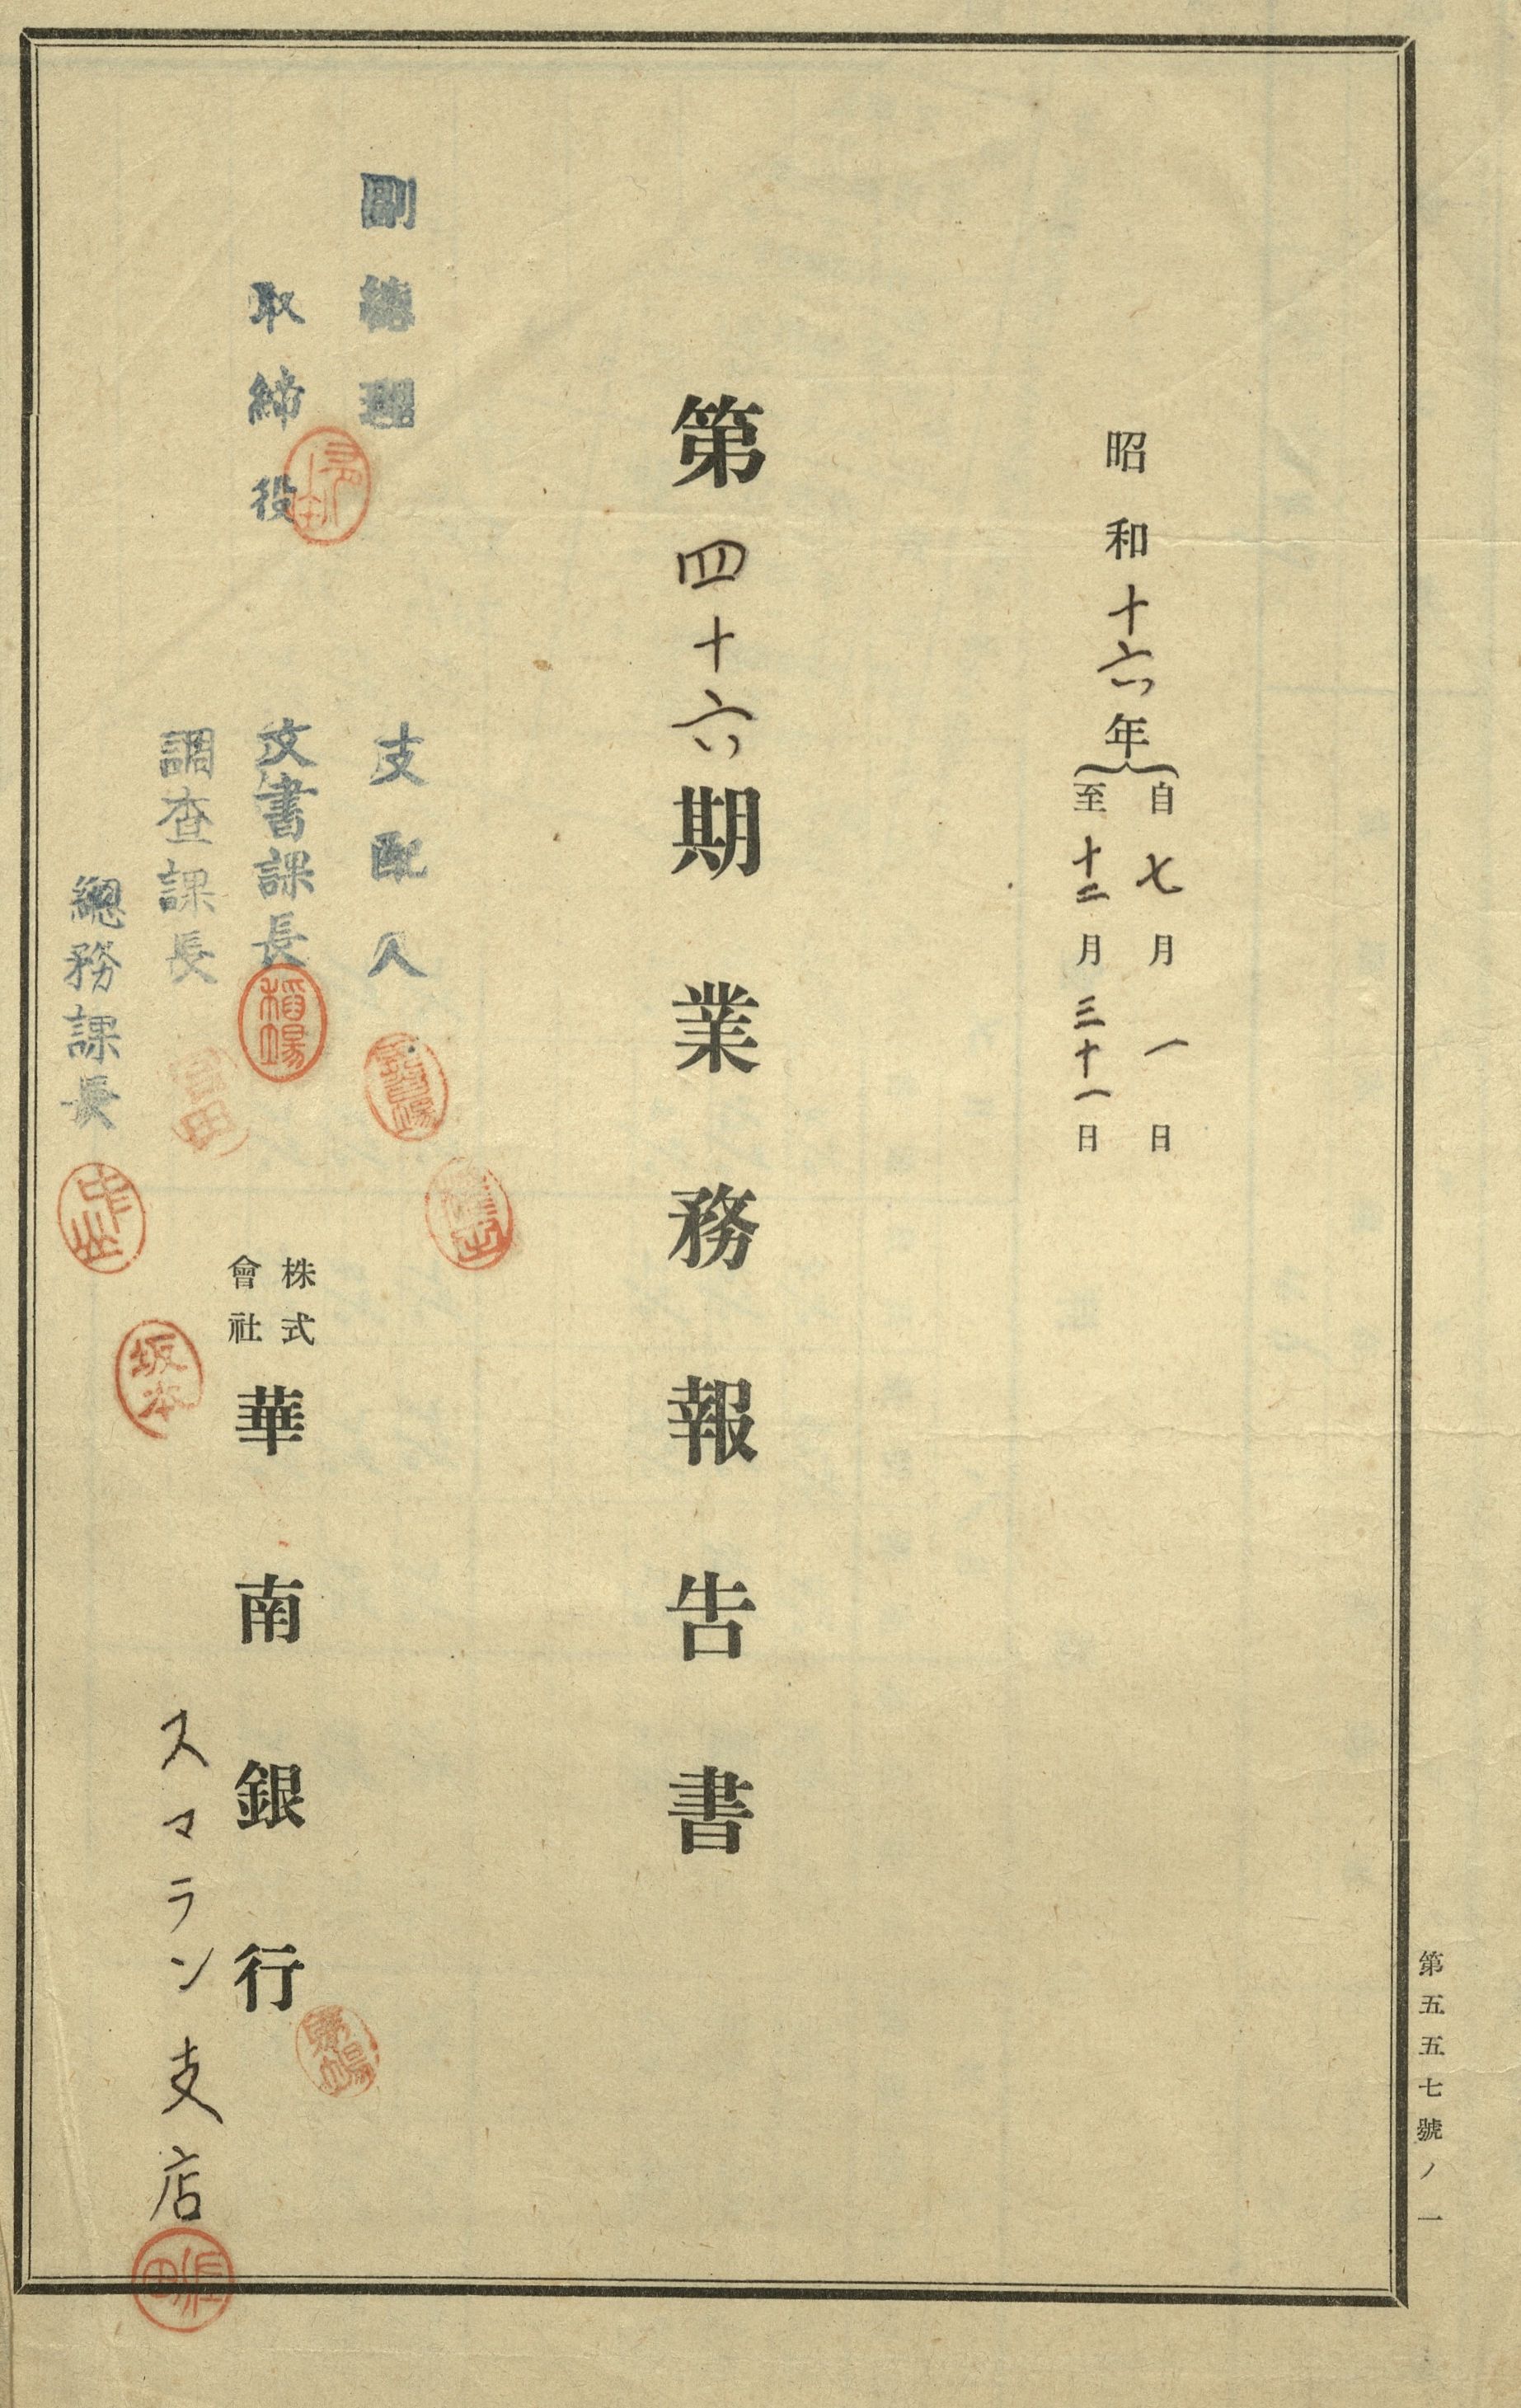 昭和十六年
自七月一日
至十二月三十一日
第四十六期業務報告書
副總理
取締役
支配人
文書課長
稻場
調查課長
總務課長
坂本
株式
會社
華南銀行
スマラン支店
第五五七號ノ一